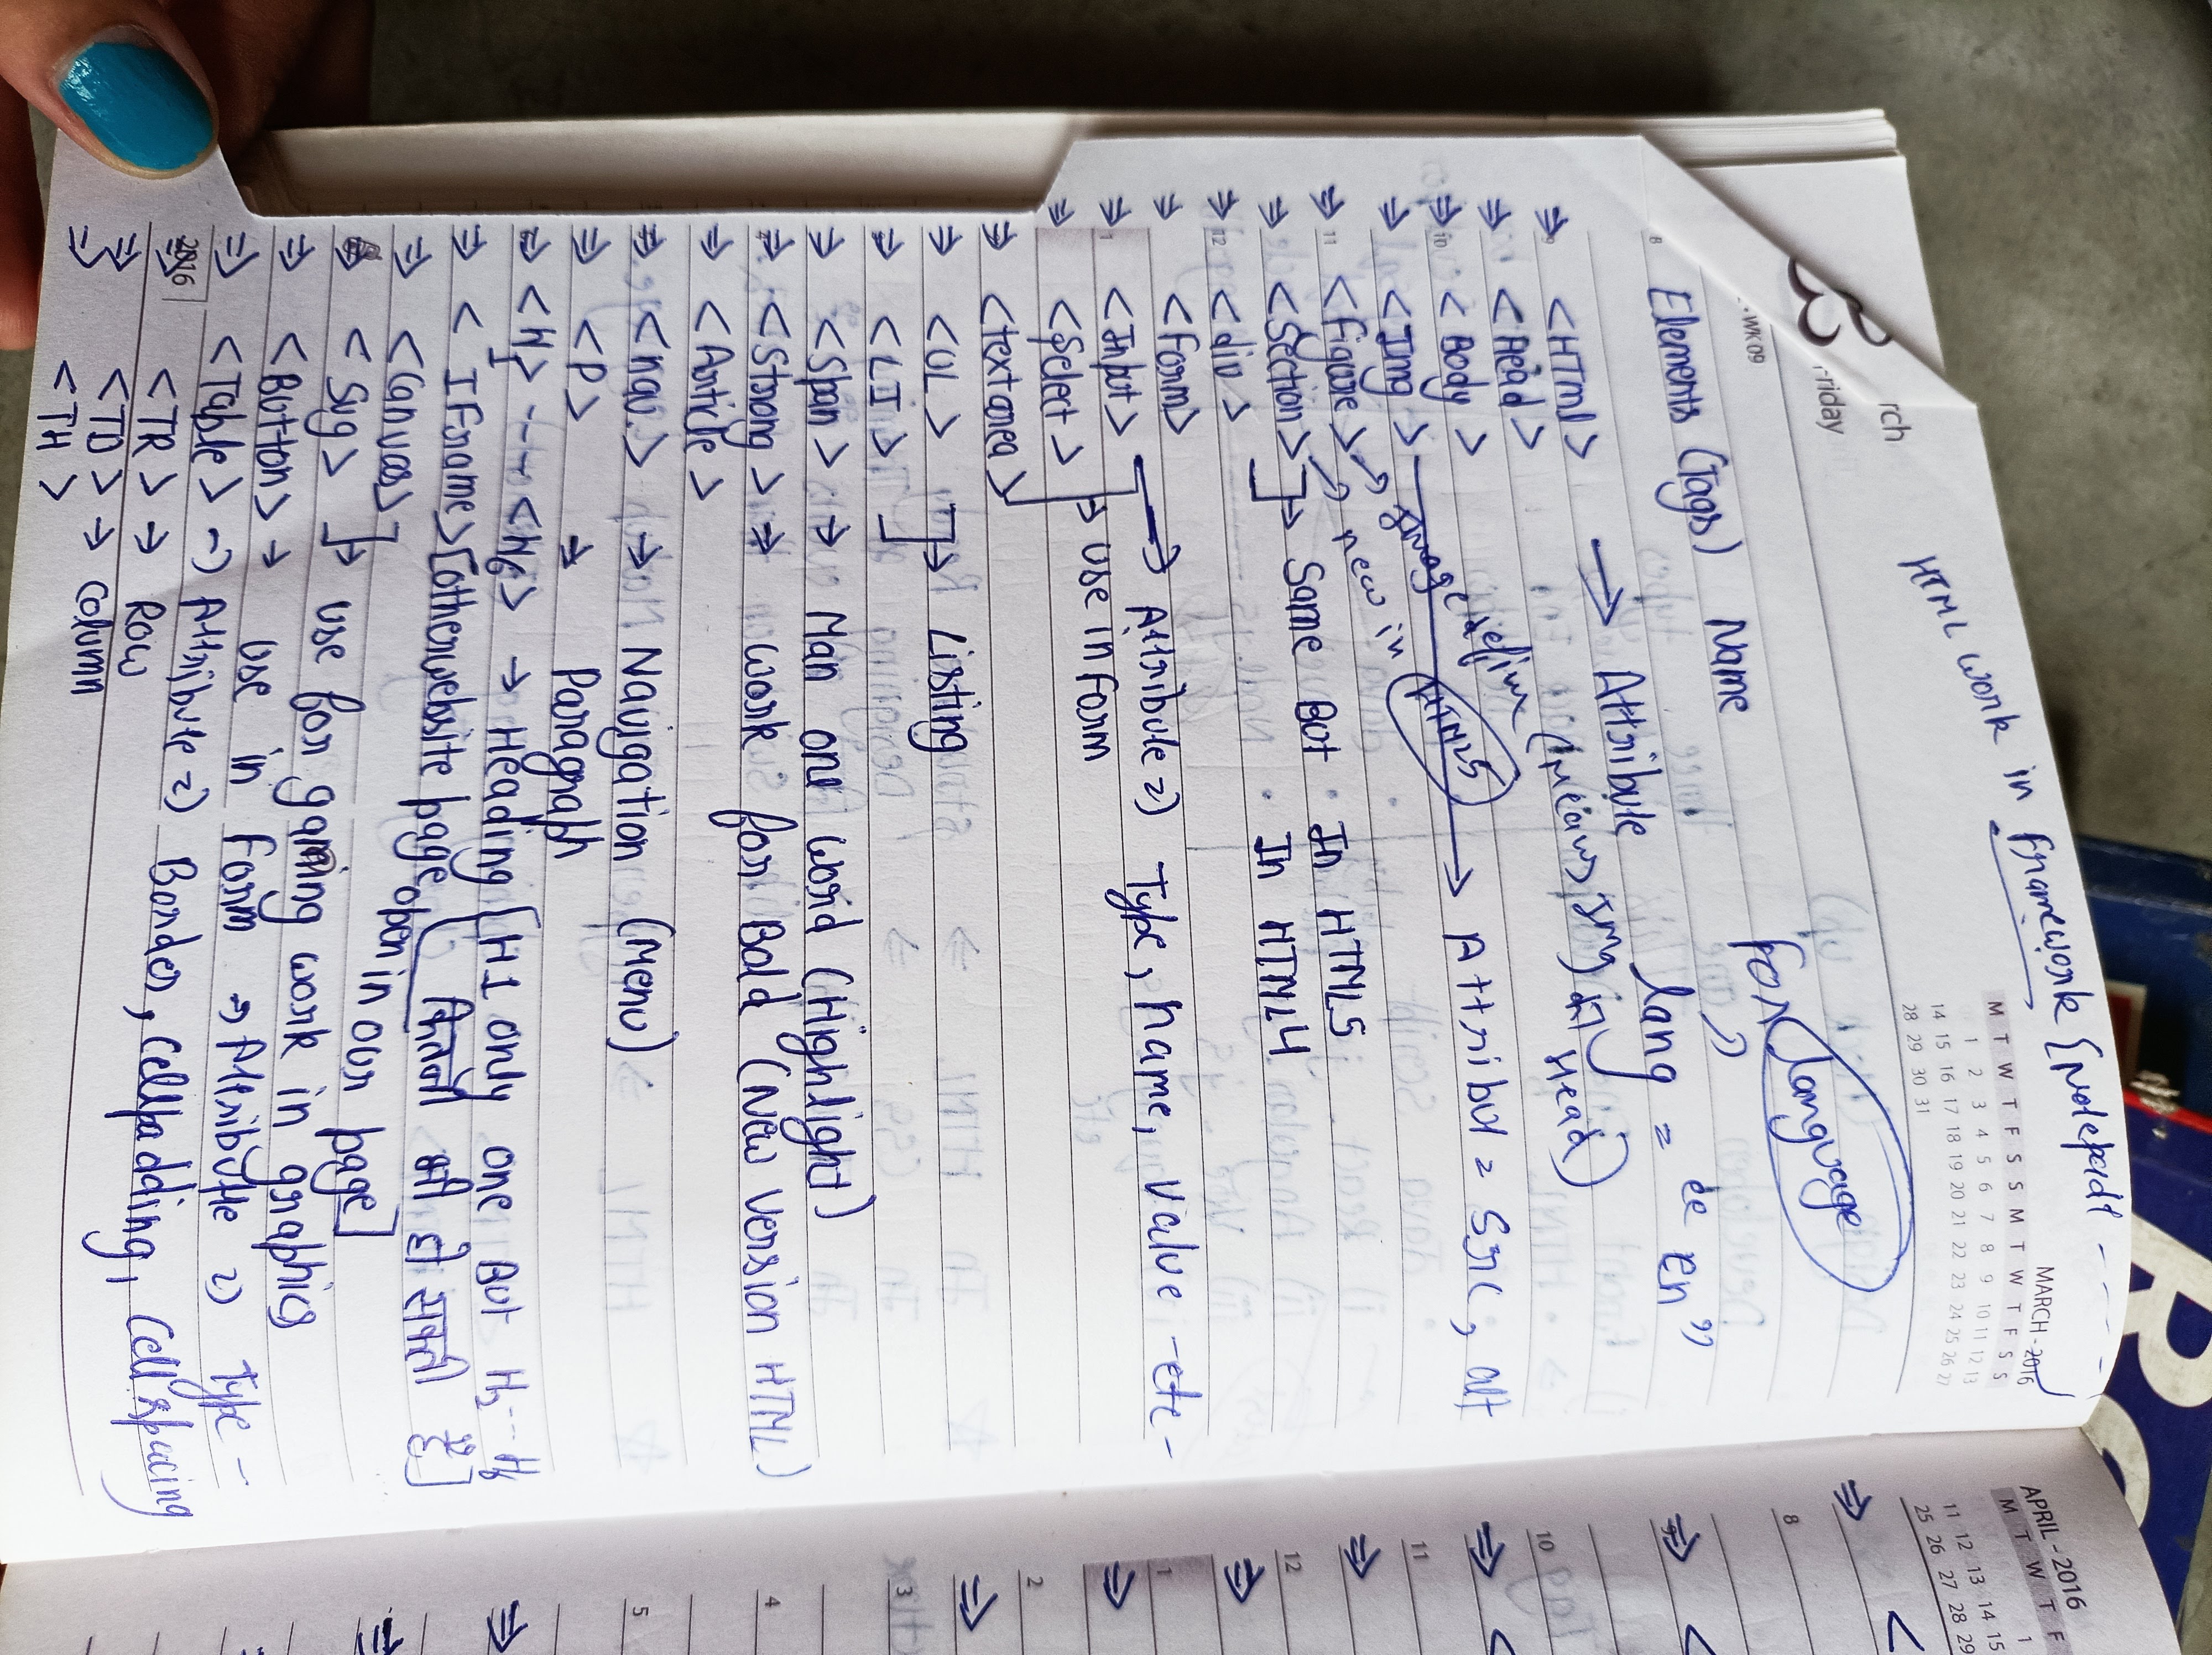 HTML work in framework {Notepad
rch
MARCH - 2016
riday
M T W T F S S M T W T F S S
1 2 3 4 5 6 7 8 9 10 11 12 13
14 15 16 17 18 19 20 21 22 23 24 25 26 27
28 29 30 31
WK 09
Elements (Tags) Name
for language
8
9
⇒ <HTml> → Attribute lang = "de en"
⇒ <Head>
10
⇒ <Body>
image define (means Img) in Head)
⇒ <Img> → Attribut = Src, alt
11
⇒ <Figure> → new in HTML5
⇒ <Section> → Same But In HTML5
12
⇒ <div> In HTML4
⇒ <Form>
1
⇒ <Input> → Attribute => Type, name, value - etc -
⇒ <Select>
→ Use in Form
⇒ <textarea>
⇒ <UL>
→ Listing
⇒ <LI>
⇒ <Span> → Man one word (Highlight)
⇒ <Strong> → work for Bold (New version HTML)
⇒ <Article>
⇒ <nav> → Navigation (Menu)
⇒ <P> → Paragraph
⇒ <H1> --- <H6> → Heading [H1 only one But H2 --- H6 कितनी भी हो सकती है]
⇒ <IFrame> [other website page open in our page]
⇒ <Canvas>
→ use for gaming work in graphics
⇒ <Svg>
⇒ <Button> → Use in Form → Attribute => Type -
⇒ <Table> → Attribute => Border, Cellpadding, Cellspacing
2016
⇒ <TR> → Row
⇒ <TD> → Column
⇒ <TH>
APRIL - 2016
M T W T F
1
11 12 13 14 15
25 26 27 28 29
8
9
10
11
12
1
2
3
4
5